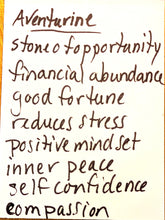 Aventurine
stone of opportunity
financial abundance
good fortune
reduces stress
positive mindset
inner peace
self confidence
compassion